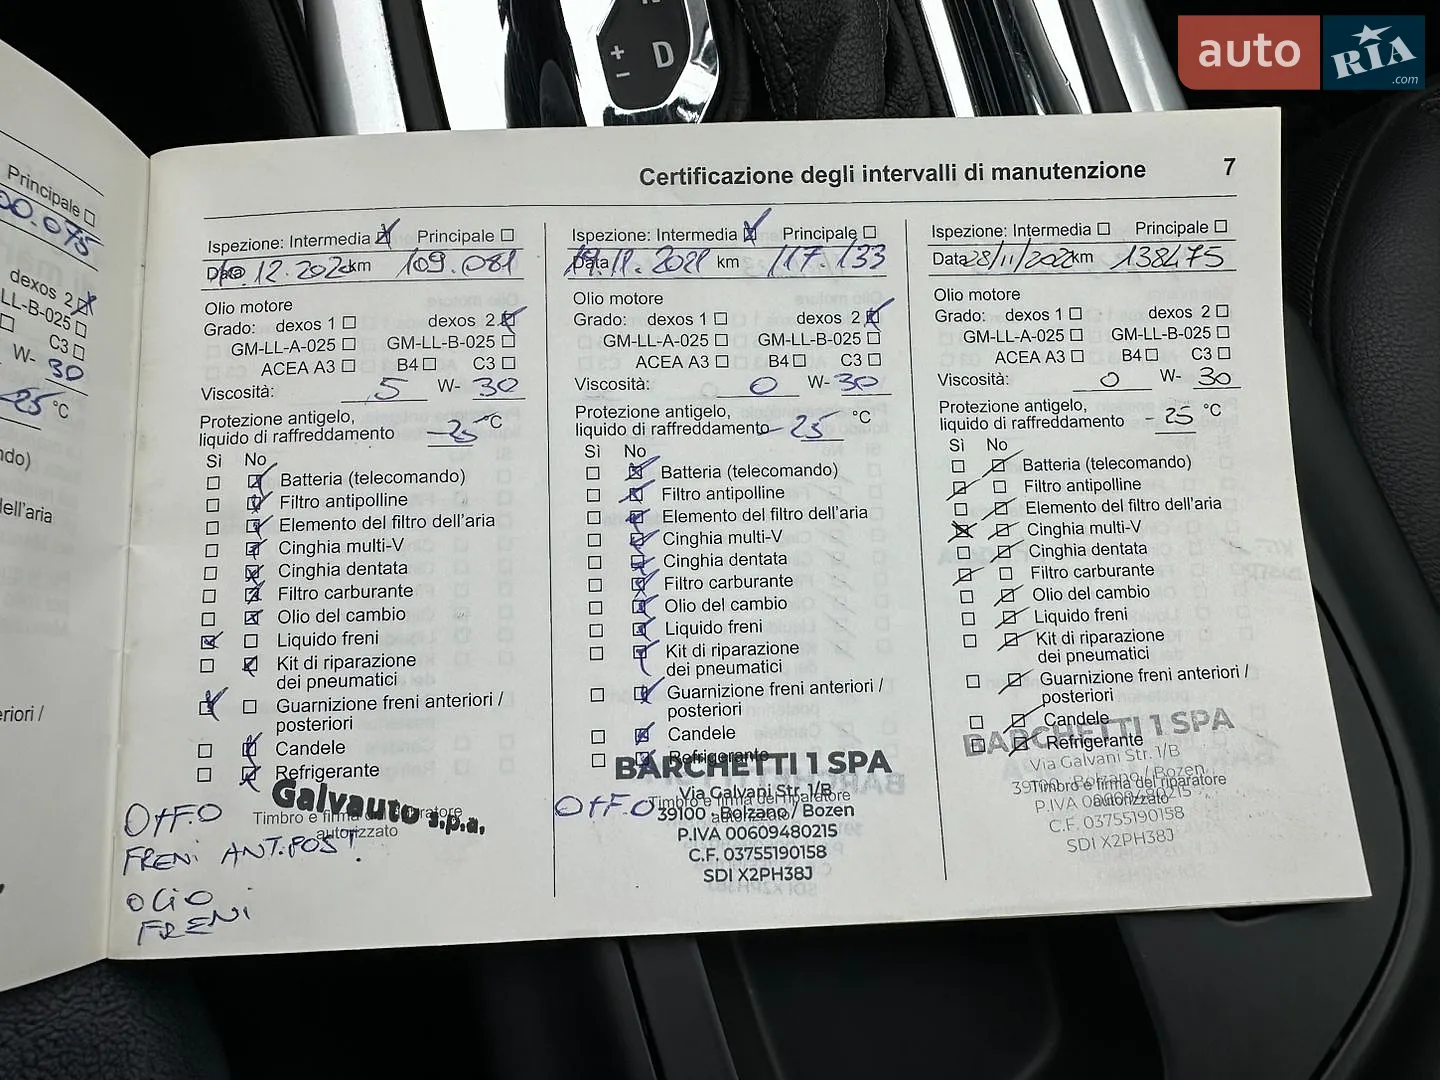 auto RIA .com
+ D
−
Principale
00.075
dexos 2
LL-B-025
C3
W- 30
-25 °C
ndo)
dell'aria
eriori /
Certificazione degli intervalli di manutenzione 7
Ispezione: Intermedia Principale
Data 12.202 km 109.081
Olio motore
Grado: dexos 1 dexos 2
GM-LL-A-025 GM-LL-B-025
ACEA A3 B4 C3
Viscosità: 5 W- 30
Protezione antigelo,
liquido di raffreddamento -25 °C
Sì No
Batteria (telecomando)
Filtro antipolline
Elemento del filtro dell'aria
Cinghia multi-V
Cinghia dentata
Filtro carburante
Olio del cambio
Liquido freni
Kit di riparazione
dei pneumatici
Guarnizione freni anteriori /
posteriori
Candele
Refrigerante
Galvauto s.p.a.
Timbro e firma del riparatore
autorizzato
O+F.O
FRENI ANT.POST.
OLIO
FRENI
Ispezione: Intermedia Principale
Data 19.11.2021 km 117.133
Olio motore
Grado: dexos 1 dexos 2
GM-LL-A-025 GM-LL-B-025
ACEA A3 B4 C3
Viscosità: 0 W- 30
Protezione antigelo,
liquido di raffreddamento -25 °C
Sì No
Batteria (telecomando)
Filtro antipolline
Elemento del filtro dell'aria
Cinghia multi-V
Cinghia dentata
Filtro carburante
Olio del cambio
Liquido freni
Kit di riparazione
dei pneumatici
Guarnizione freni anteriori /
posteriori
Candele
Refrigerante
BARCHETTI 1 SPA
Via Galvani Str. 1/B
O+F.O Timbro e firma del riparatore
39100 - Bolzano / Bozen
autorizzato
P.IVA 00609480215
C.F. 03755190158
SDI X2PH38J
Ispezione: Intermedia Principale
Data 28/11/2022 km 138475
Olio motore
Grado: dexos 1 dexos 2
GM-LL-A-025 GM-LL-B-025
ACEA A3 B4 C3
Viscosità: 0 W- 30
Protezione antigelo,
liquido di raffreddamento 25 °C
Sì No
Batteria (telecomando)
Filtro antipolline
Elemento del filtro dell'aria
Cinghia multi-V
Cinghia dentata
Filtro carburante
Olio del cambio
Liquido freni
Kit di riparazione
dei pneumatici
Guarnizione freni anteriori /
posteriori
Candele
BARCHETTI 1 SPA
Refrigerante
Via Galvani Str. 1/B
39100 - Bolzano / Bozen
Timbro e firma del riparatore
P.IVA 00609480215
autorizzato
C.F. 03755190158
SDI X2PH38J